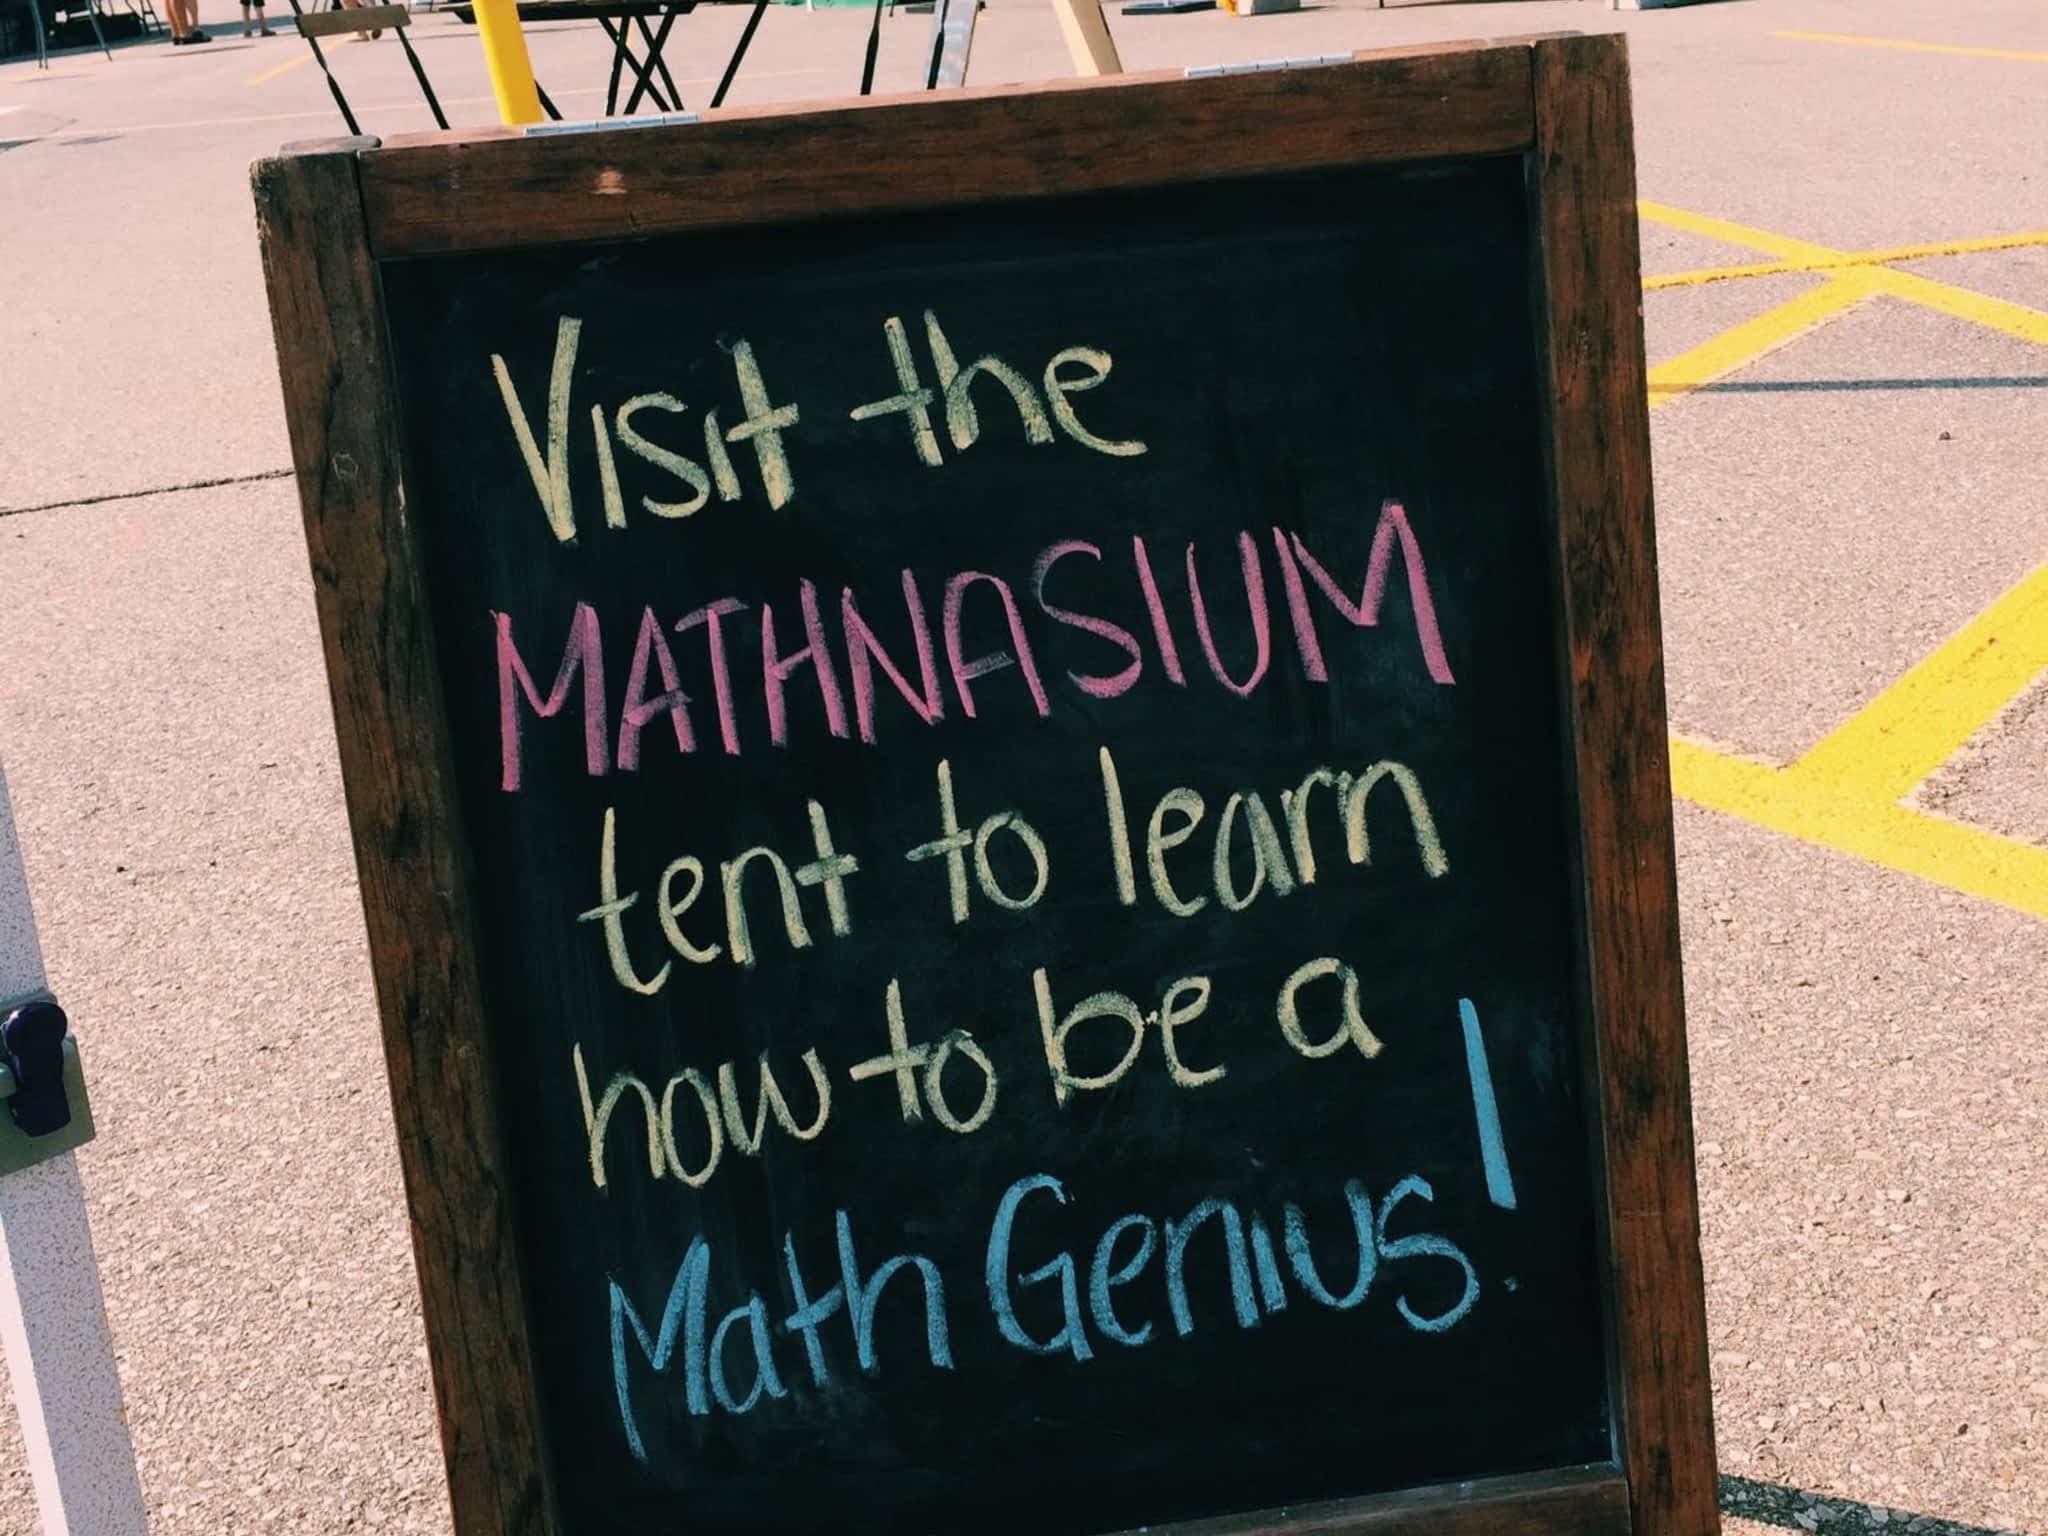 Visit the
MATHNASIUM
tent to learn
how to be a
Math Genius!